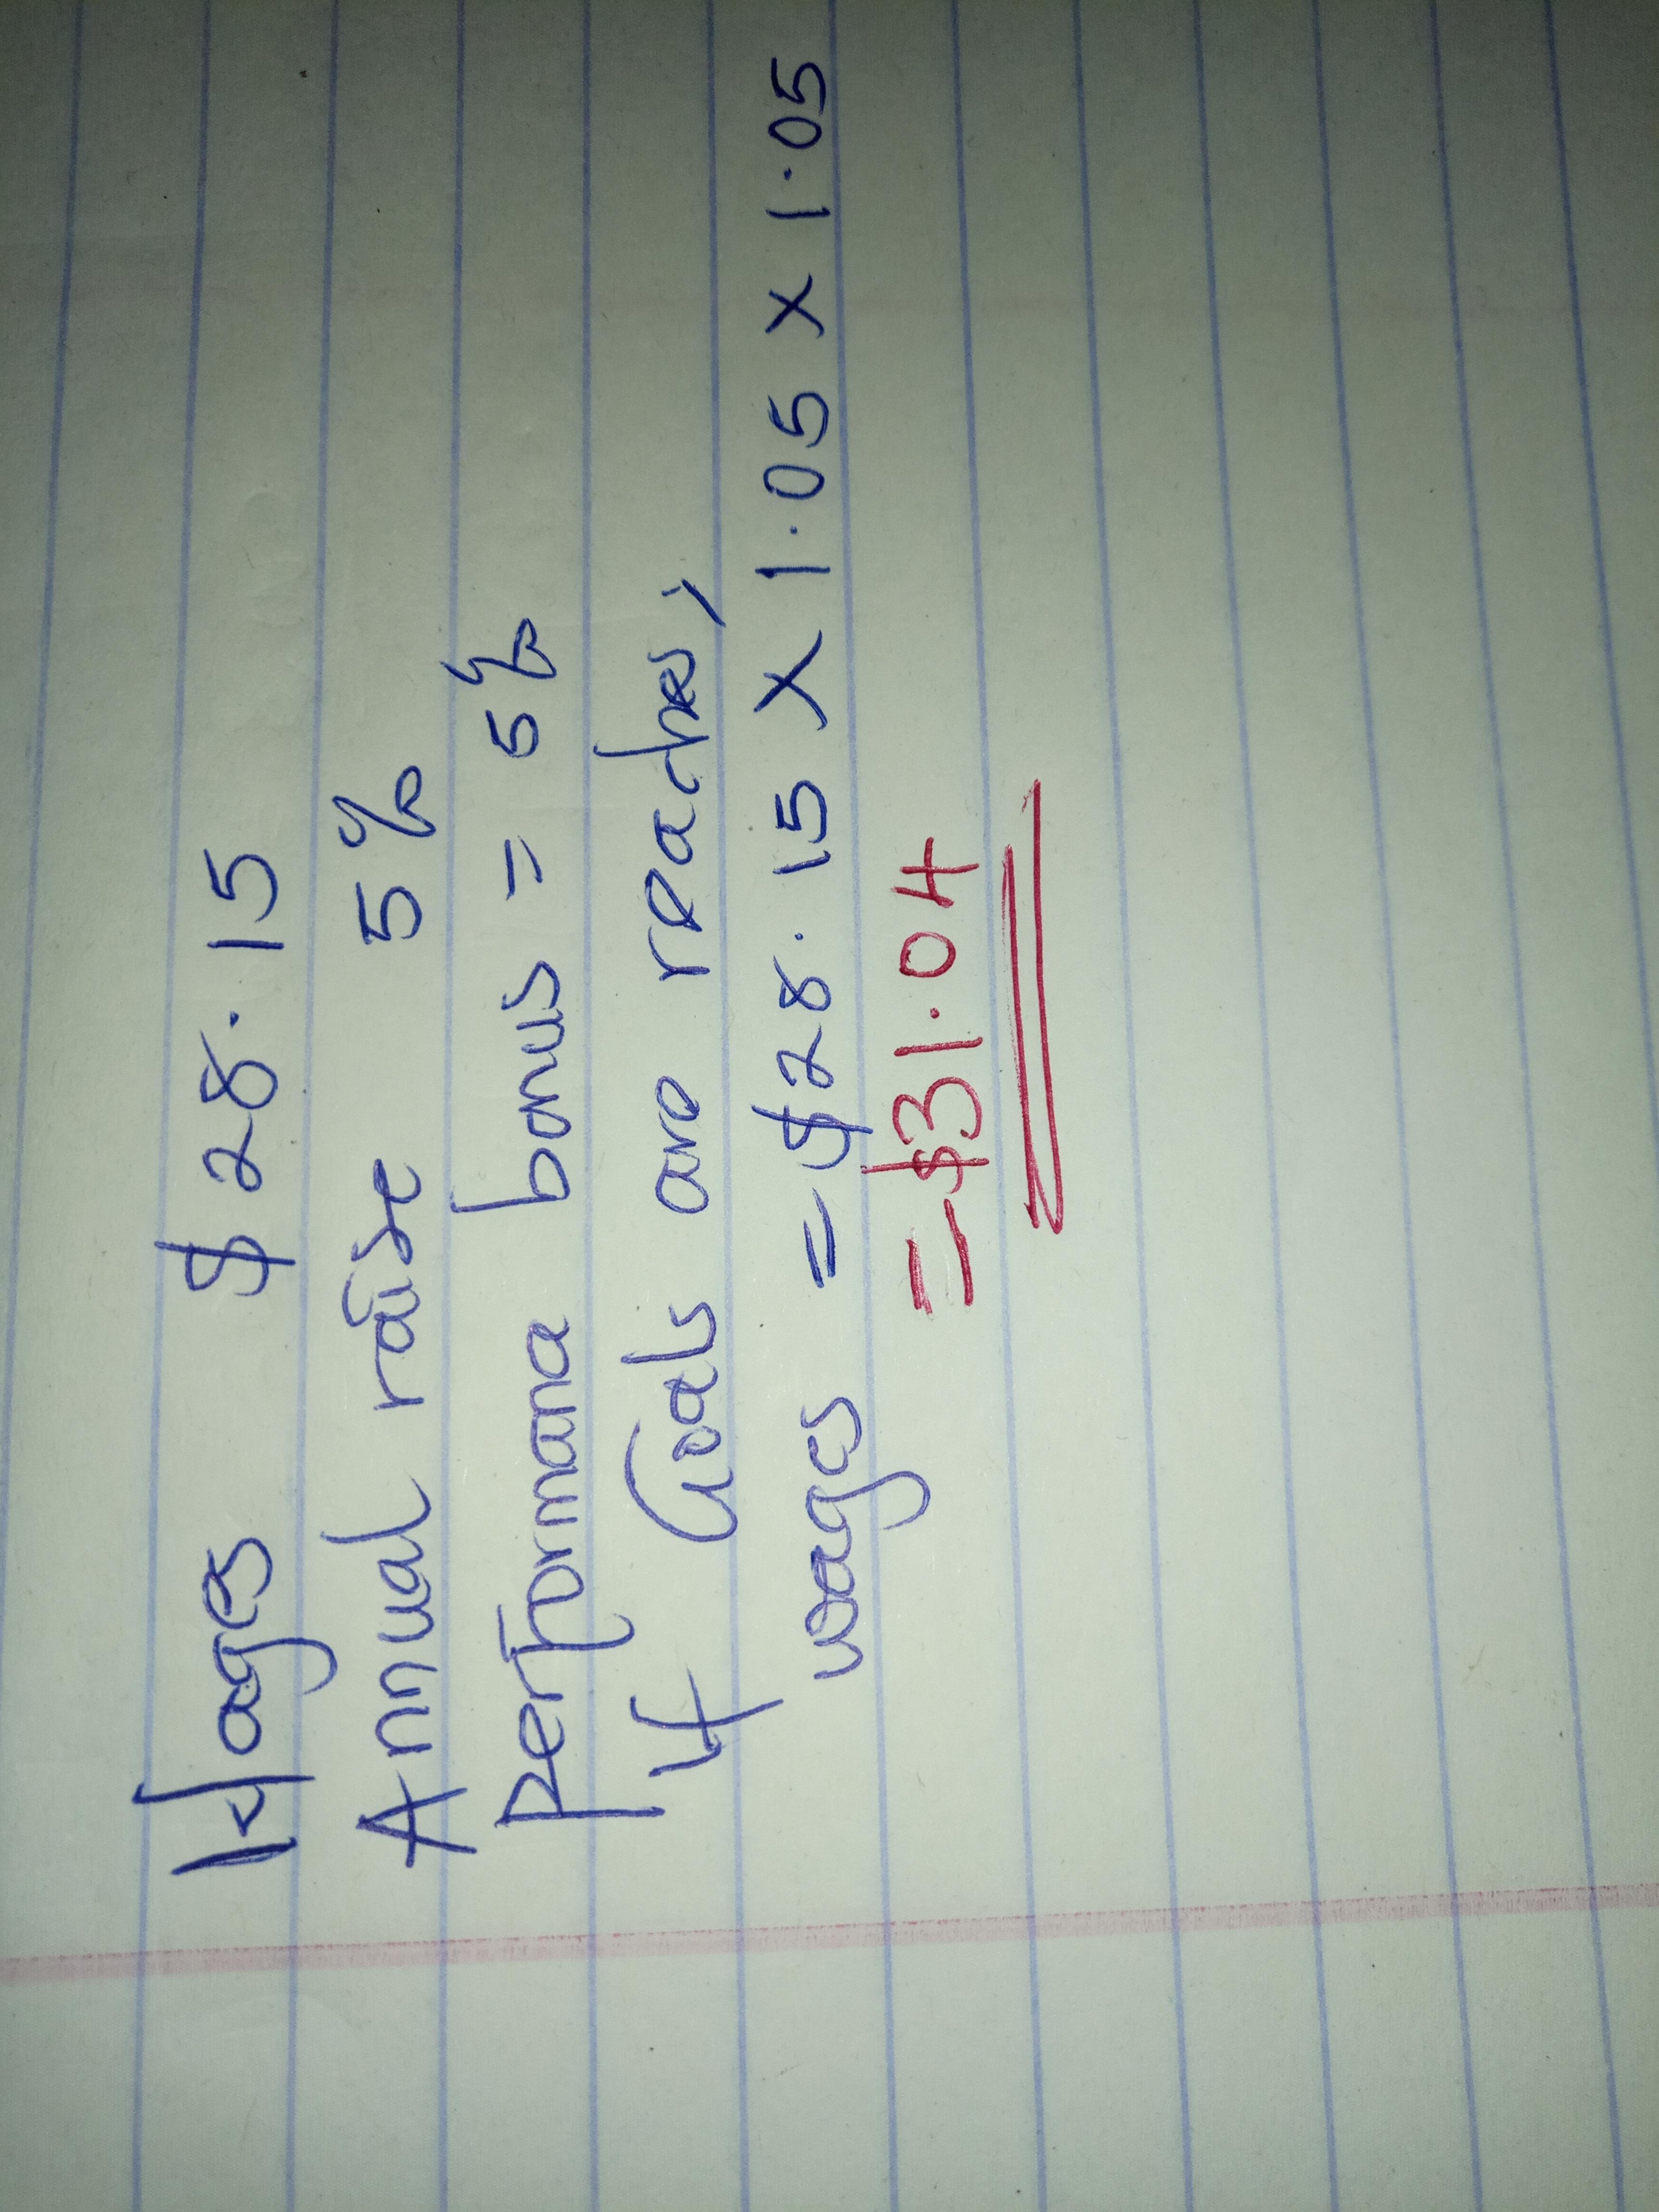 Wages $28.15
Annual raise 5%
Performana bonus = 5%
If Goals are reaches,
wages = $28.15 X 1.05 X 1.05
= $31.04